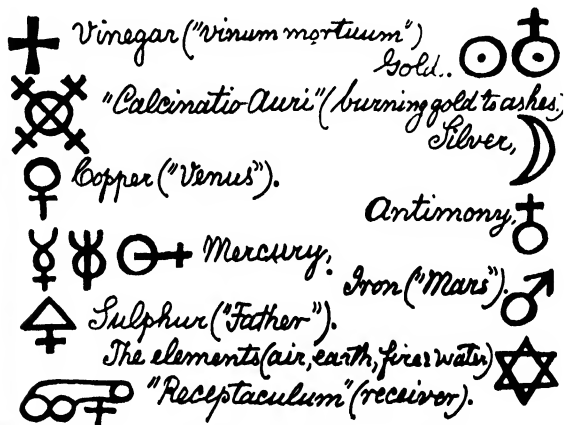 Vinegar ("vinum mortuum")
Gold..
"Calcinatio Auri" (burning gold to ashes.)
Silver,
Copper ("Venus").
Antimony,
Mercury,
Iron ("Mars").
Sulphur ("Father").
The elements (air, earth, fire & water)
"Receptaculum" (receiver).